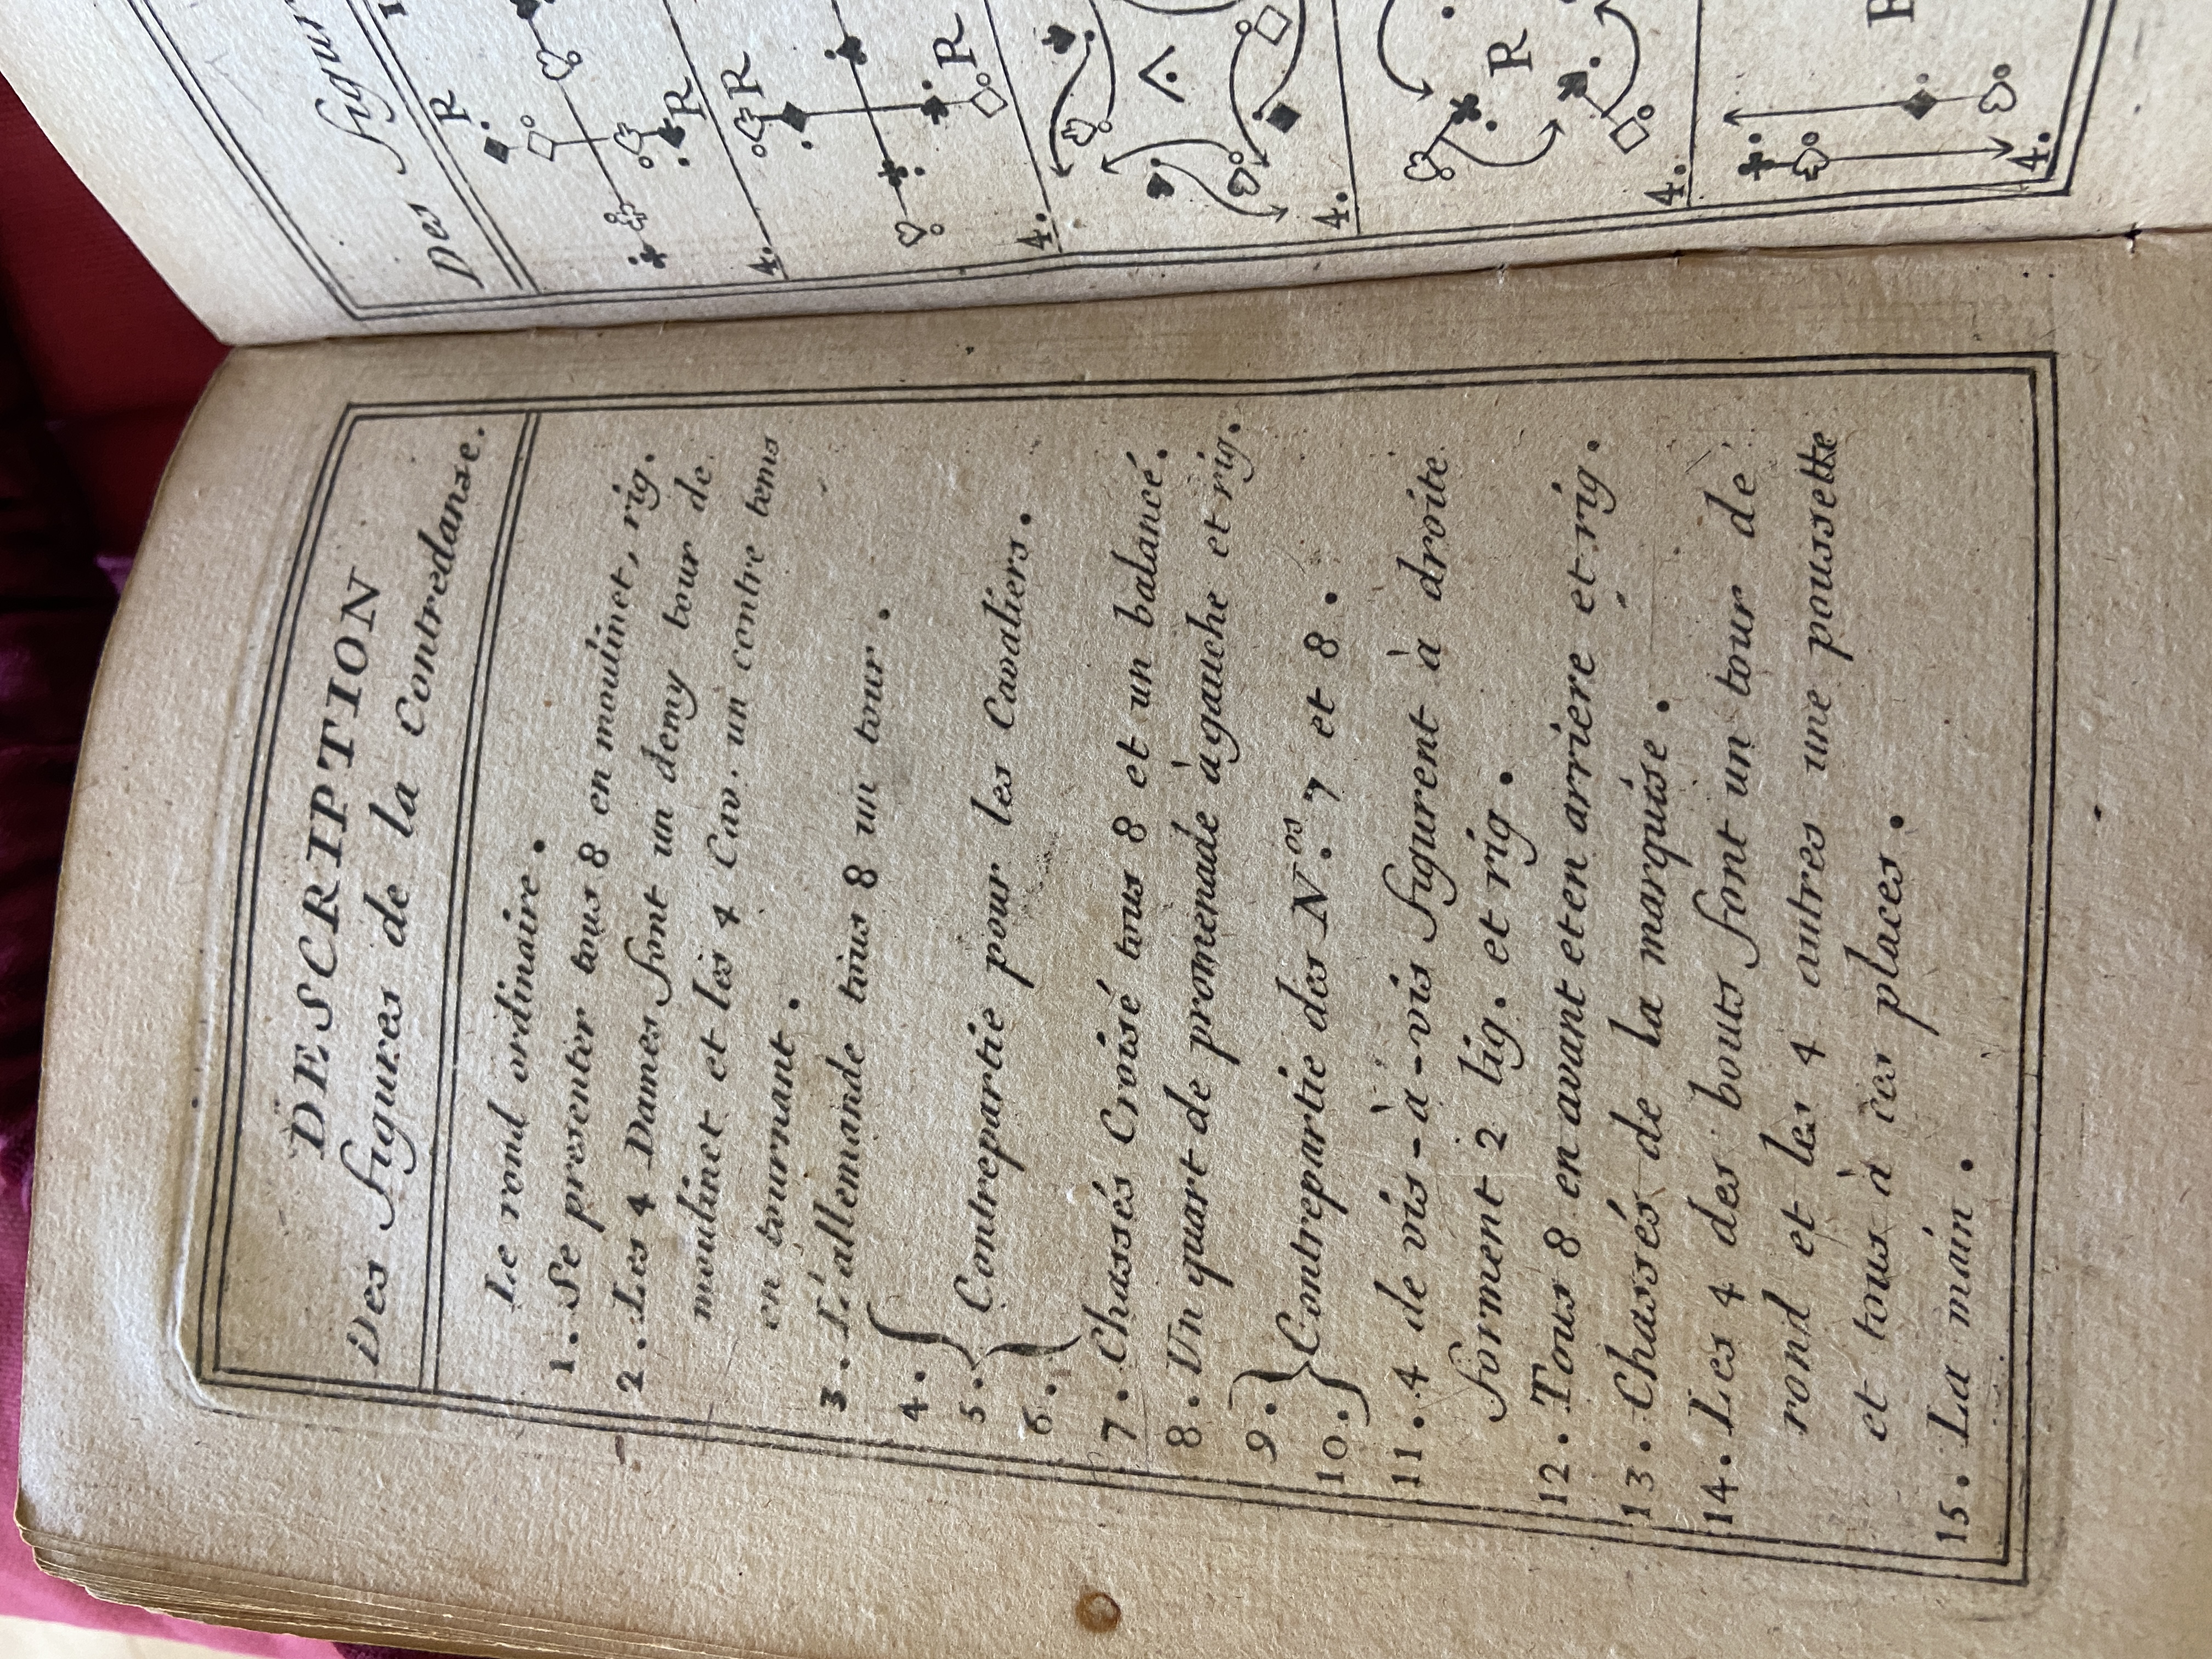 DESCRIPTION
Des figures de la Contredanse.
Le rond ordinaire.
1. Se presenter tous 8 en moulinet, rig.
2. Les 4 Dames font un demy tour de
moulinet et les 4 Cav. un contre tems
en tournant.
3. L'allemande tous 8 un tour.
4.
5. Contrepartie pour les Cavaliers.
6.
7. Chassés Croisé tous 8 et un balancé.
8. Un quart de promenade à gauche et rig.
9.
10. Contrepartie des N.os 7 et 8.
11. 4 de vis-à-vis figurent à droite
forment 2 lig. et rig.
12. Tous 8 en avant et en arriere et rig.
13. Chassés de la marquise.
14. Les 4 des bouts font un tour de
rond et les 4 autres une poussette
et tous à ces places.
15. La main.
Des figur
R
R
4.
R
R
4.
4.
R
4.
4.